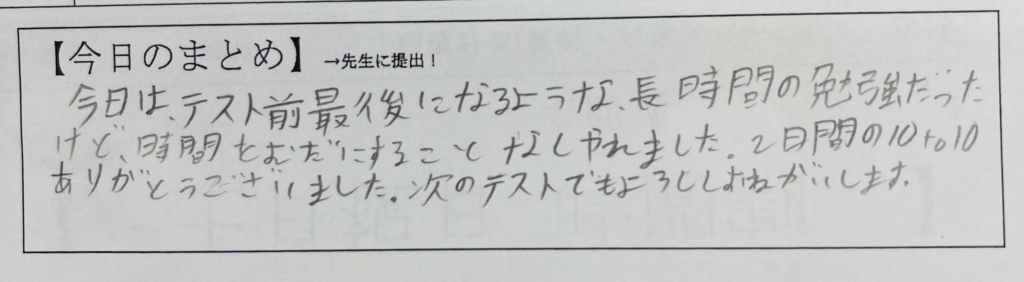 【今日のまとめ】 →先生に提出！
今日は、テスト前最後になるような、長時間の勉強だった
けど、時間をむだにすることなしやれました。2日間の10to10
ありがとうございました。次のテストでもよろしくおねがいします。